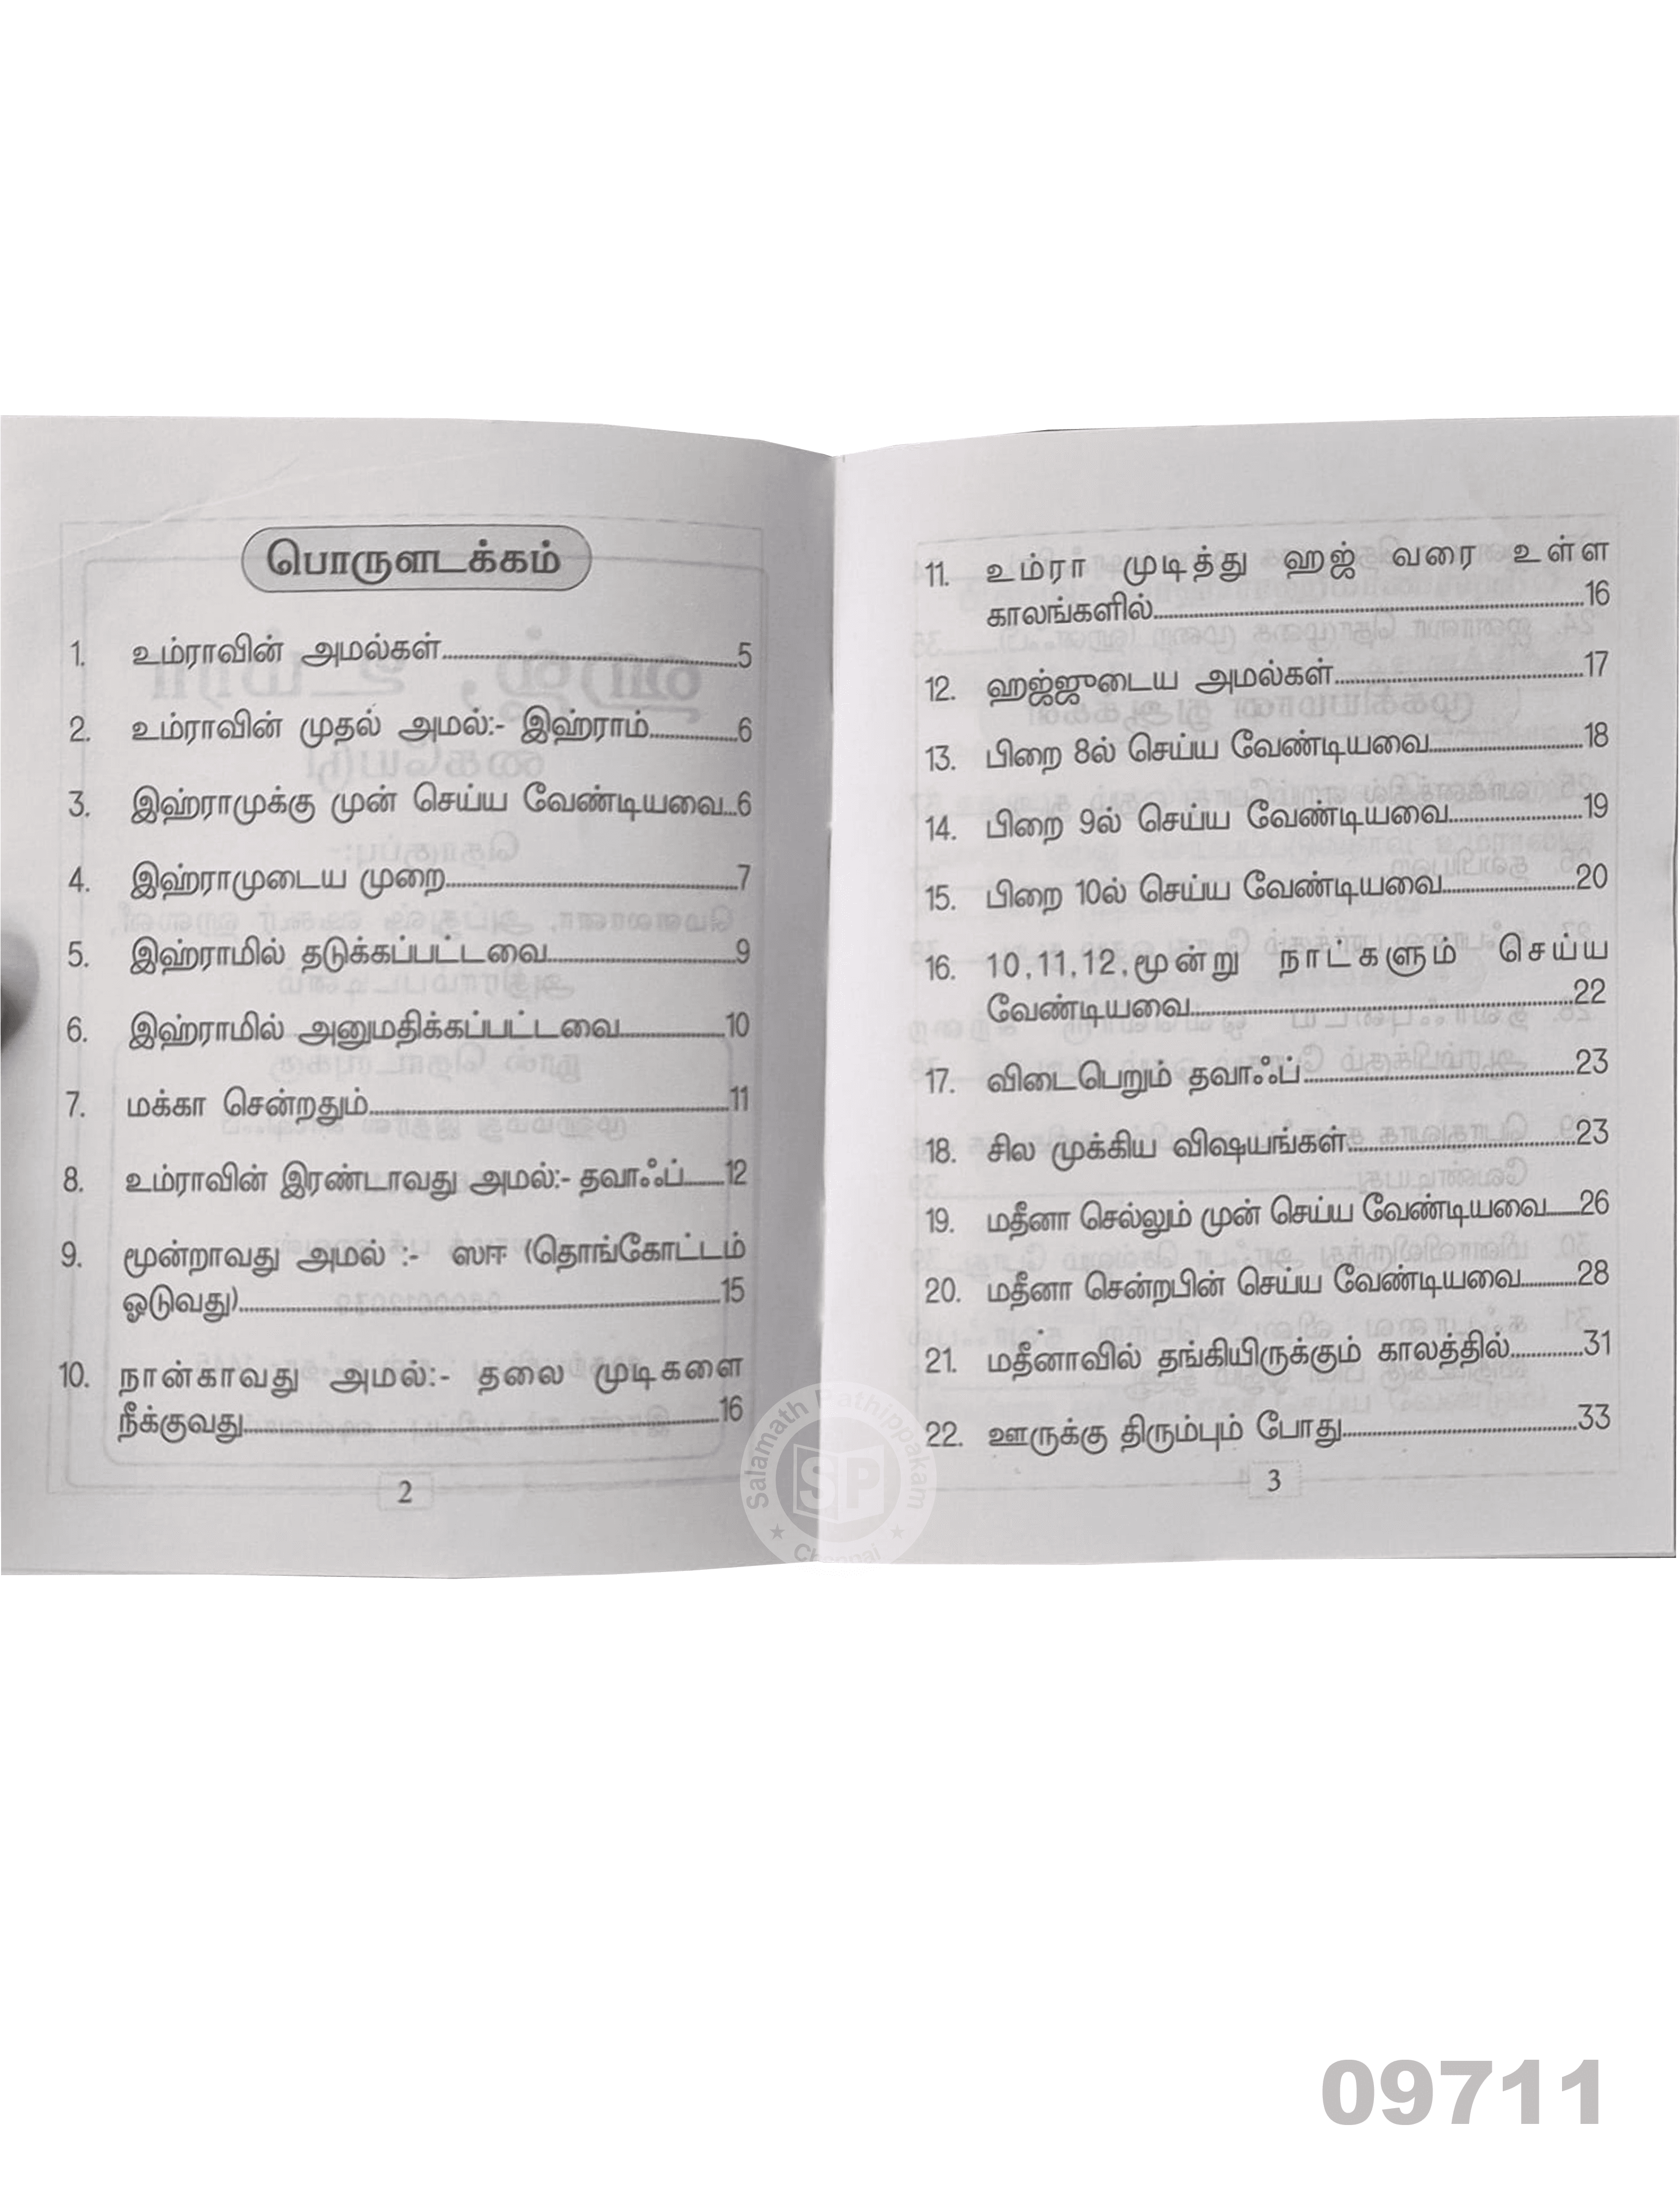 பொருளடக்கம்
1. உம்ராவின் அமல்கள்.....5
2. உம்ராவின் முதல் அமல்:- இஹ்ராம்.....6
3. இஹ்ராமுக்கு முன் செய்ய வேண்டியவை...6
4. இஹ்ராமுடைய முறை.....7
5. இஹ்ராமில் தடுக்கப்பட்டவை.....9
6. இஹ்ராமில் அனுமதிக்கப்பட்டவை.....10
7. மக்கா சென்றதும்.....11
8. உம்ராவின் இரண்டாவது அமல்:- தவாஃப்.....12
9. மூன்றாவது அமல் :- ஸஈ (தொங்கோட்டம்
ஓடுவது).....15
10. நான்காவது அமல்:- தலை முடிகளை
நீக்குவது.....16
2
11. உம்ரா முடித்து ஹஜ் வரை உள்ள
காலங்களில்.....16
12. ஹஜ்ஜுடைய அமல்கள்.....17
13. பிறை 8ல் செய்ய வேண்டியவை.....18
14. பிறை 9ல் செய்ய வேண்டியவை.....19
15. பிறை 10ல் செய்ய வேண்டியவை.....20
16. 10,11,12,மூன்று நாட்களும் செய்ய
வேண்டியவை.....22
17. விடைபெறும் தவாஃப்.....23
18. சில முக்கிய விஷயங்கள்.....23
19. மதீனா செல்லும் முன் செய்ய வேண்டியவை.....26
20. மதீனா சென்றபின் செய்ய வேண்டியவை.....28
21. மதீனாவில் தங்கியிருக்கும் காலத்தில்.....31
22. ஊருக்கு திரும்பும் போது.....33
3
Salamath Pathippakam
SP
Chennai
09711